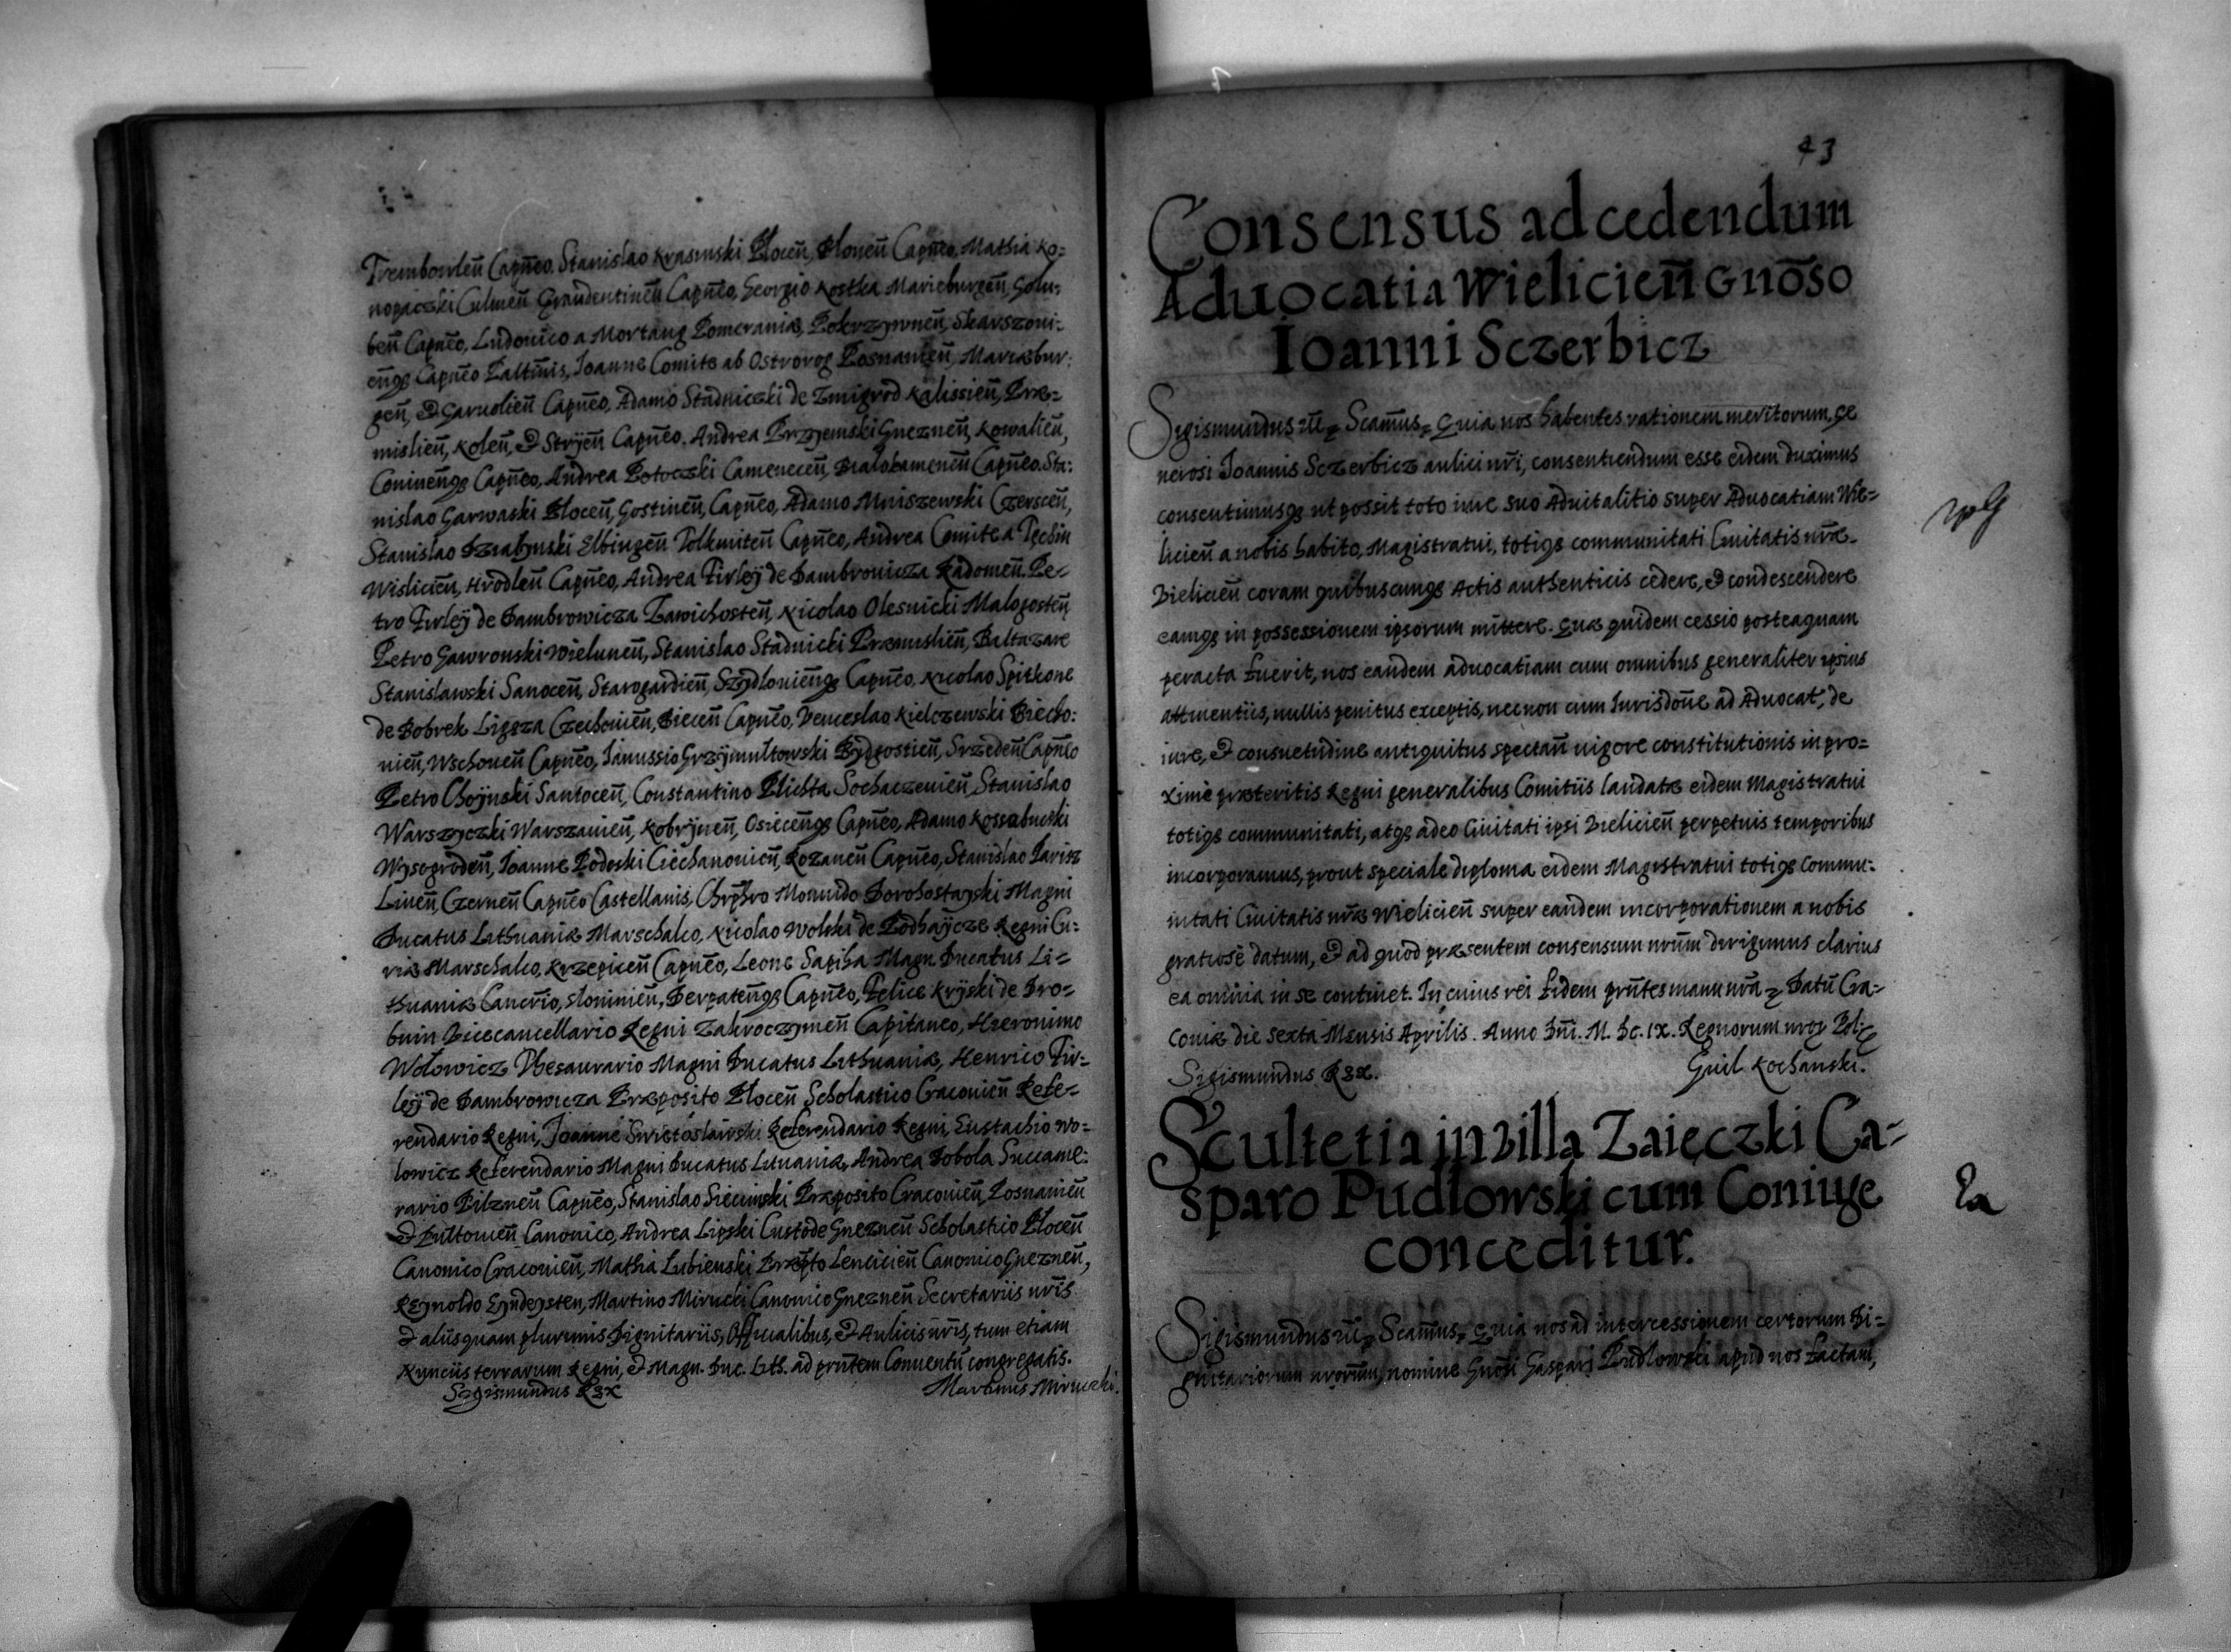 Trembowleñ Capñeo, Stanislao Krasinski Ploceñ, Ploneñ Capñeo, Mathia Ko=
nopaczki Culmeñ Graudentineñ Capñeo, Georgio Kostka Marieburgeñ, Golu=
beñ Capñeo, Ludouico a Mortang Pomeraniæ, Pokrzywneñ, Skarszoui=
eñqȝ Capñeo Palatinis, Joanne Comite ab Ostrorog Posnanieñ, Mariæbur=
geñ, & Garuolieñ Capñeo, Adamo Stadniczki de Zmigrod Kalissieñ, Præ=
mislieñ, Koleñ, & Stryeñ Capñeo. Andrea Przyemski Gnezneñ, Kowalieñ,
Conineñqȝ Capñeo, Andrea Potoczki Cameneceñ, Bialokameneñ Capñeo. Sta=
nislao Garwaski Ploceñ, Gostineñ, Capñeo, Adamo Mniszewski Czersceñ,
Stanislao Dzialynski Elbingeñ Tolkmiteñ Capñeo, Andrea Comite a Tęchin
Wislicieñ, Hrodleñ Capñeo, Andrea Firley de Dambrouicza Radomeñ. Pe=
tro Firley de Dambrowicza Zawichosteñ, Nicolao Olesnicki Malogosteñ
Petro Gawronski Wieluneñ, Stanislao Stadnicki Præmislieñ, Baltazare
Stanislawski Sanoceñ, Starogardieñ, Szydlouieñqȝ Capñeo, Nicolao Spitkone
de Bobrek Ligęza Czechouieñ, Bieceñ Capñeo, Venceslao Kielczewski Biecho=
uieñ, Wschoueñ Capñeo, Ianussio Grzymultowski Bydgostieñ, Srzedeñ Capñeo
Petro Choynski Santoceñ, Constantino Plichta Sochaczeuieñ, Stanislao
Warszyczki Warszauieñ, Kobryneñ, Osieceñqȝ Capñeo, Adamo Kossobucki
Wysogrodeñ, Joanne Podoski Ciechanouieñ, Rozaneñ Capñeo, Stanislao Parisz
Liueñ, Czerneñ Capñeo Castellanis, Chrphro Monuido Dorohostayski Magni
Ducatus Lithuaniæ Marschalco, Nicolao Wolski de Podhaycze Regni Cu=
riæ Marschalco, Krzepiceñ Capñeo, Leone Sapiha Magn. Ducatus Li=
thuaniæ Cancrio, Slonimieñ, Derpateñqȝ Capñeo, Felice Kryski de Dro=
buin Vicecancellario Regni Zakroczymeñ Capitaneo, Hieronimo
Wołowicz Thesaurario Magni Ducatus Lithuaniæ, Henrico Fir=
ley de Dambrowicza Præposito Ploceñ Scholastico Cracouieñ Refe=
rendario Regni, Joanne Swietoslawski Referendario Regni, Eustachio Wo=
lowicz Referendario Magni Ducatus Lituaniæ, Andrea Bobola Succame=
rario Pilzneñ Capñeo, Stanislao Siecinski Præposito Cracouieñ, Posnanieñ
& Pultoueñ Canonico, Andrea Lipski Custode Gnezneñ Scholastico Ploceñ
Canonico Cracouieñ, Mathia Lubienski Præpto Lencicieñ Canonico Gnezneñ,
Reynoldo Eyndeysten, Martino Mirucki Canonico Gnezneñ Secretariis nr̃is
& aliis quam plurimis Dignitariis, Officialibus, & Aulicis nr̃is, tum etiam
Nunciis terrarum Regni, & Magn. Duc. Lith. ad prñtem Conuentũ congregatis.
Sigismundus Rex Martinus Mirucki.
43
Consensus ad cedendum
Aduocatia Wielicieñ Gnõso
Ioanni Sczerbicz
Sigismundus III. Scamus, Quia nos habentes rationem meritorum, ge
nerosi Joannis Sczerbicz aulici nr̃i, consentiendum esse eidem duximus
consentimusqȝ ut possit toto iure suo Aduitalitio super Aduocatiam Wie=
licieñ a nobis habito, Magistratui, totiqȝ communitati Ciuitatis nr̃æ
Vielicieñ coram quibuscunqȝ Actis authenticis cedere, & condescendere
eamqȝ in possessionem ipsorum mittere. Quæ quidem cessio posteaquam
peracta fuerit, nos eandem aduocatiam cum omnibus generaliter ipsius
attinentiis, nullis penitus exceptis, necnon cum Iurisdoñe ad Aduocat, de
iure, & consuetudine antiquitus spectañ uigore constitutionis in pro=
xime præteritis Regni generalibus Comitiis laudatæ eidem Magistratui
totiqȝ communitati, atqȝ adeo Ciuitati ipsi Vielicieñ perpetuis temporibus
incorporamus, prout speciale diploma eidem Magistratui totiqȝ Commu=
nitati Ciuitatis nr̃æ Wielicieñ super eandem incorporationem a nobis
gratiose datum, & ad quod præsentem consensum nrũm dirigimus clarius
ea omnia in se continet. In cuius rei fidem prñtes manu nr̃a Datũ Cra=
couiæ die sexta Mensis Aprilis. Anno Dñi. M. DC. IX. Regnorum nror̃ Poli
Sigismundus Rex. Guil Kochanski.
Scultetia in Villa Zaięczki Ca=
sparo Pudlowski cum Coniuge
conceditur.
Sigismundus III. Scamus, Quia nos ad intercessionem certorum Di=
gnitariorum nrorũm, nomine Gnõsi Gaspari Pudlowski apud nos factam,